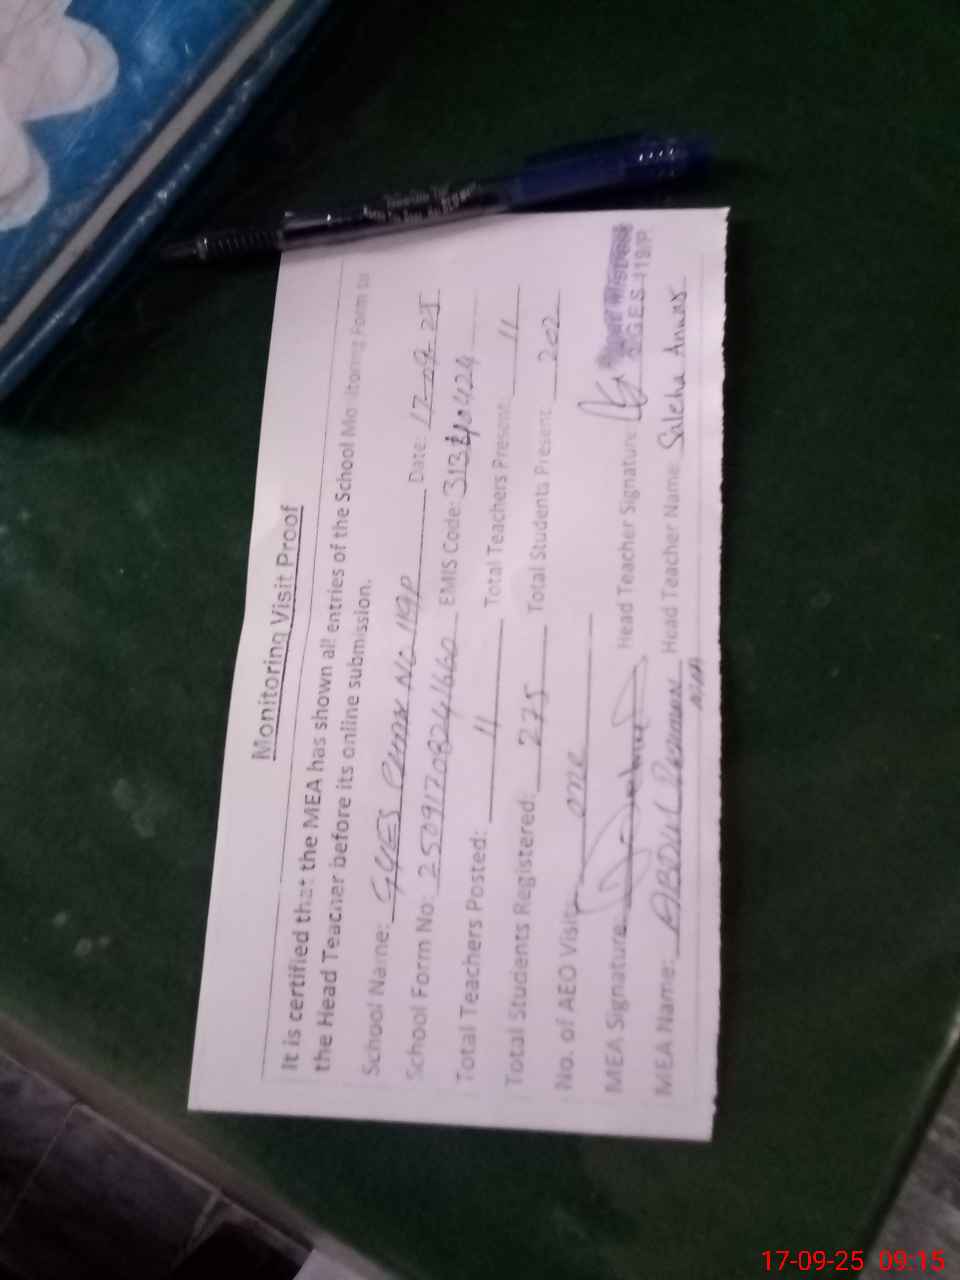 Monitoring Visit Proof
It is certified that the MEA has shown all entries of the School Monitoring Form to
the Head Teacher before its online submission.
School Name: GGES Chak NO 119P Date: 17-09-25
School Form No: 25091708241660 EMIS Code: 31340424
Total Teachers Posted: 11 Total Teachers Present: 11
Total Students Registered: 275 Total Students Present: 202
No. of AEO Visits: one
MEA Signature: Head Teacher Signature:
GGES-119/P.
MEA Name: ABDUL Rahman Head Teacher Name: Saleha Anwar
17-09-25 09:15